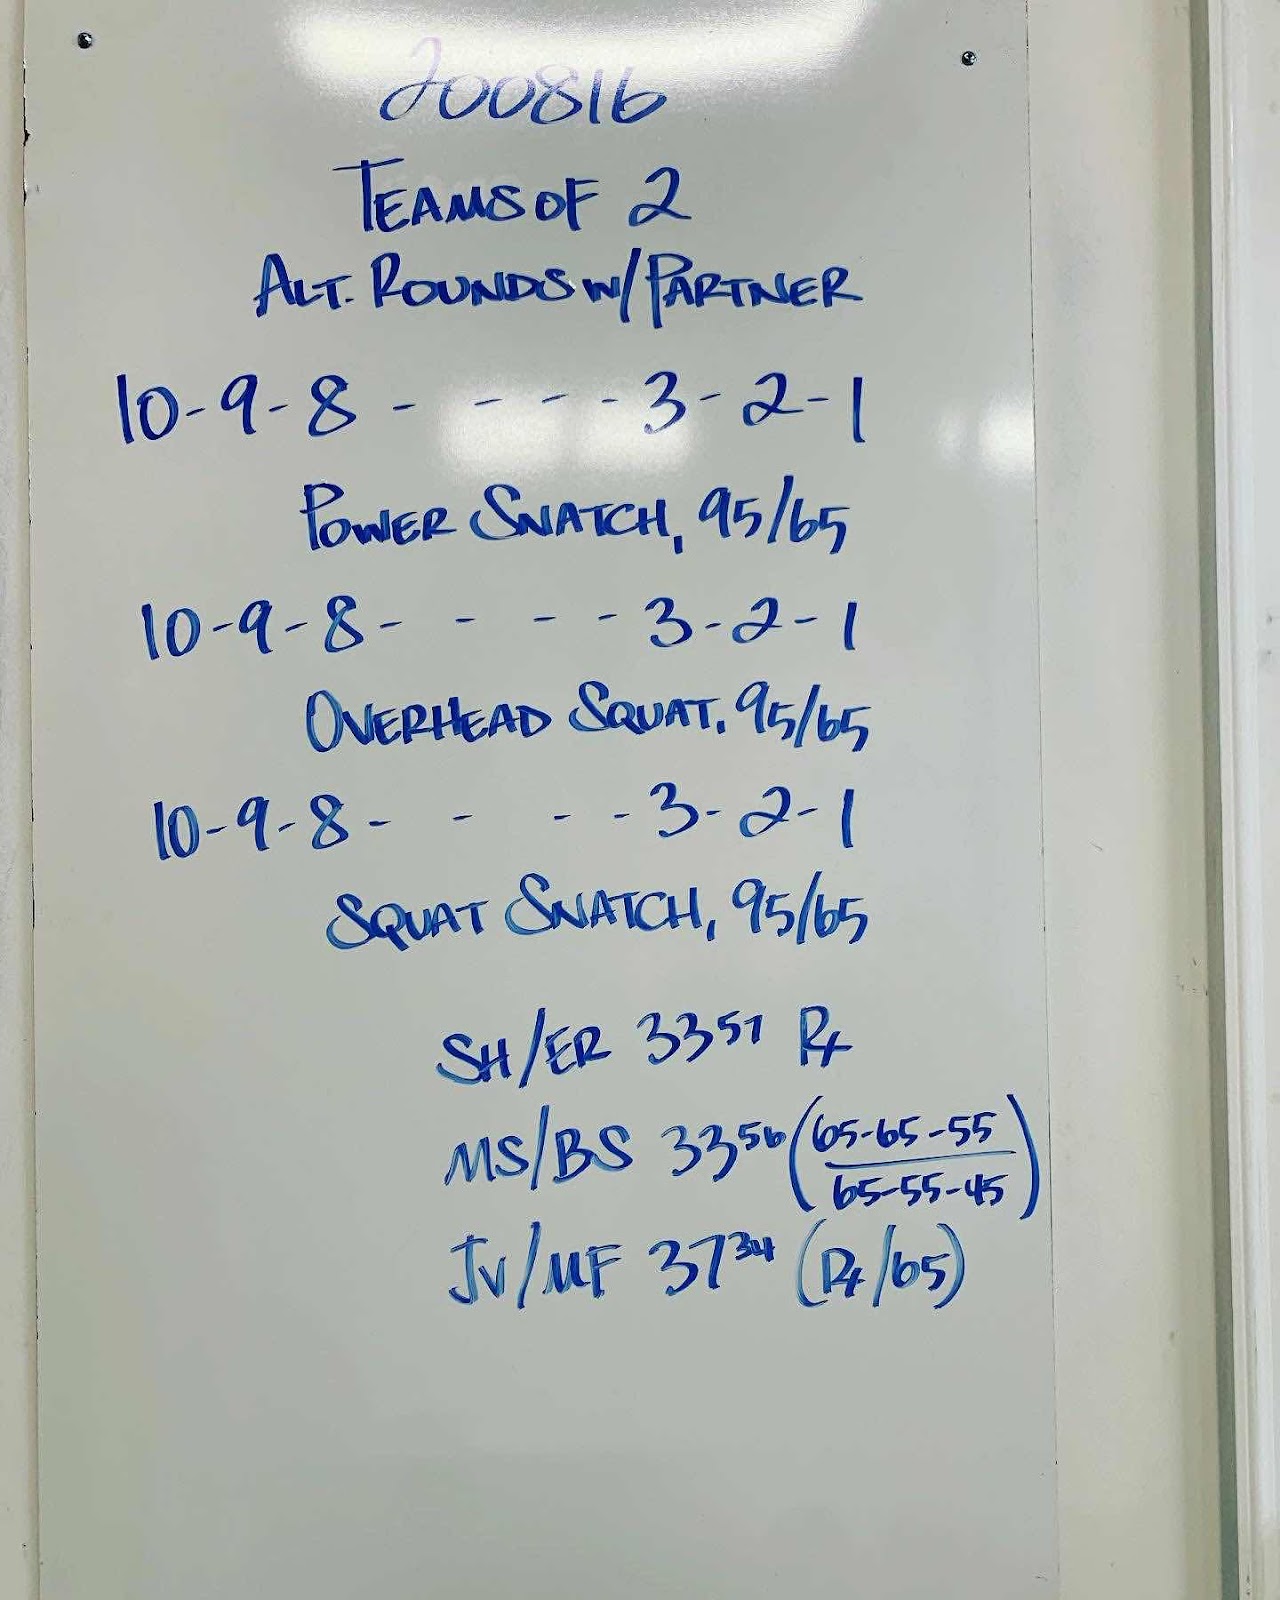 200816
TEAMS OF 2
ALT. ROUNDS W/PARTNER
10-9-8 - - - - -3-2-1
POWER SNATCH, 95/65
10-9-8- - - -3-2-1
OVERHEAD SQUAT, 95/65
10-9-8- - - -3-2-1
SQUAT SNATCH, 95/65
SH/ER 33 51 Rx
MS/BS 33 56 (65-65-55
65-55-45)
JV/MF 37 34 (Rx/65)